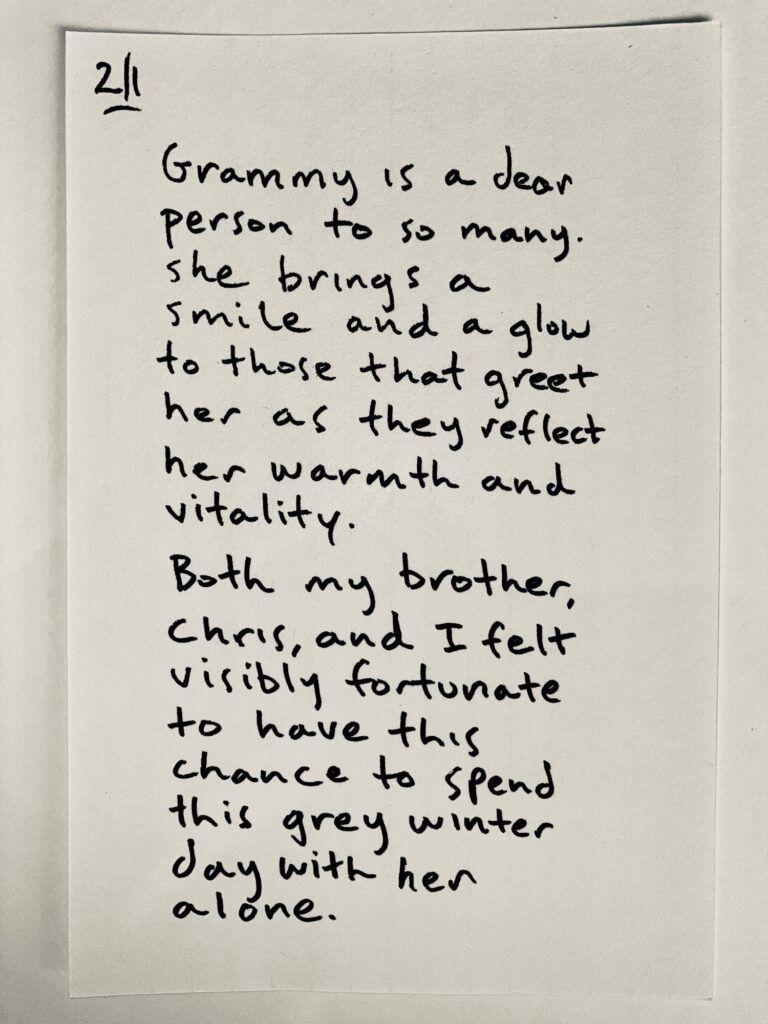 2/1
Grammy is a dear
person to so many.
she brings a
smile and a glow
to those that greet
her as they reflect
her warmth and
vitality.
Both my brother,
Chris, and I felt
visibly fortunate
to have this
chance to spend
this grey winter
day with her
alone.